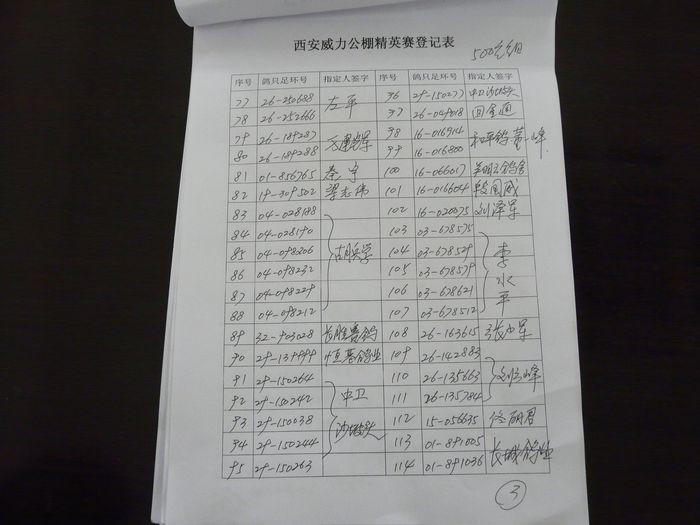 西安威力公棚精英赛登记表
500元组
序号 鸽只足环号 指定人签字 序号 鸽只足环号 指定人签字
77 26-250688 左平 96 29-150277 中卫沙坡头
78 26-252666 97 26-049018 田金通
79 26-189287 98 16-016914
80 26-189288 99 16-016800
81 01-856765 蔡宁 100 16-066017
82 19-809502 梁志伟 101 16-016604
83 04-028188 102 16-020075 刘泽军
84 04-028190 103 03-678575
85 04-098206 胡胜学 104 03-678529 李水平
86 04-098232 105 03-678579
87 04-098229 106 03-678621
88 04-098212 107 03-678512
89 32-903028 长胜赛鸽 108 26-163615
90 29-139999 恒基鸽业 109 26-142883
91 29-150264 110 26-135663
92 29-150242 中卫 111 26-135784
93 29-150038 沙坡头 112 15-056635 佟丽君
94 29-150244 113 01-891005 长城鸽业
95 29-150263 114 01-891036
3